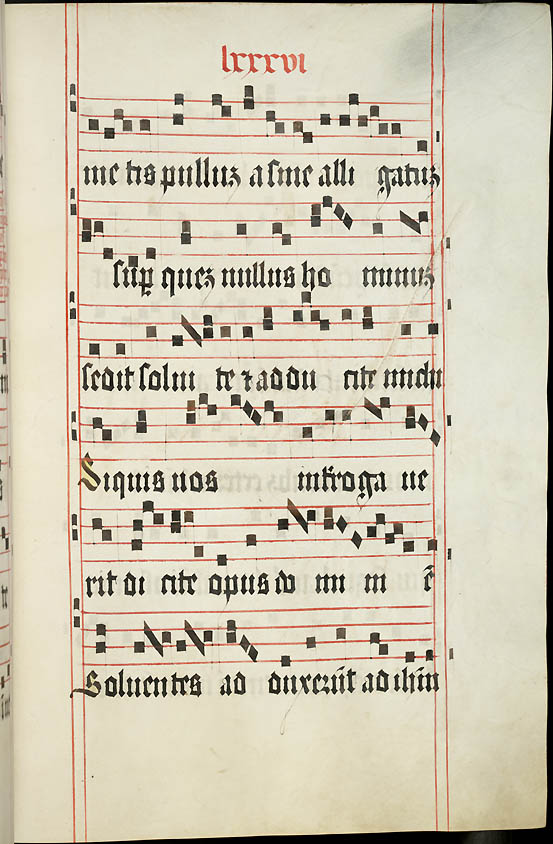 lxxxvi
me tis pulluʒ asine alli gatuʒ
sup̱ queʒ nullus ho minuʒ
sedit solui te ⁊ addu cite michi
Siquis uos int̄roga ue
rit di cite opus do mi ni ē
Soluentes ad duxerūt ad ihm̄